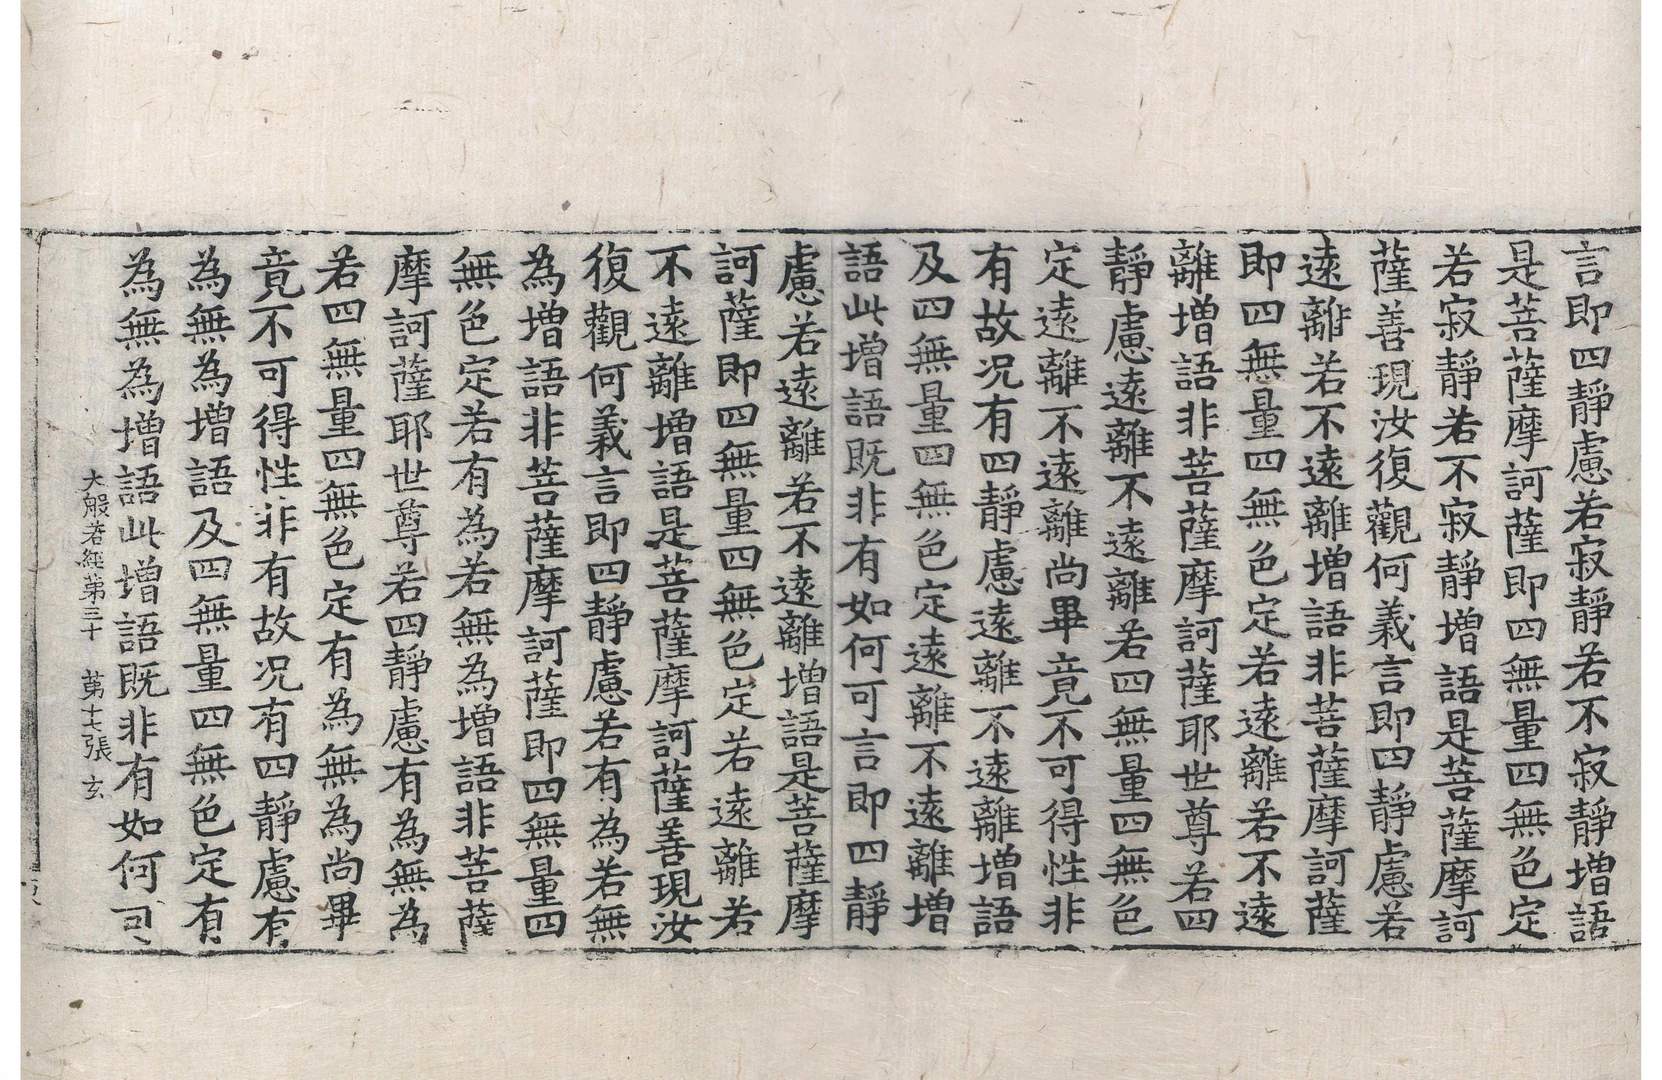 言即四靜慮若寂靜若不寂靜增語
是菩薩摩訶薩即四無量四無色定
若寂靜若不寂靜增語是菩薩摩訶
薩善現汝復觀何義言即四靜慮若
遠離若不遠離增語非菩薩摩訶薩
即四無量四無色定若遠離若不遠
離增語非菩薩摩訶薩耶世尊若四
靜慮遠離不遠離若四無量四無色
定遠離不遠離尚畢竟不可得性非
有故况有四靜慮遠離不遠離增語
及四無量四無色定遠離不遠離增
語此增語既非有如何可言即四靜
慮若遠離若不遠離增語是菩薩摩
訶薩即四無量四無色定若遠離若
不遠離增語是菩薩摩訶薩善現汝
復觀何義言即四靜慮若有為若無
為增語非菩薩摩訶薩即四無量四
無色定若有為若無為增語非菩薩
摩訶薩耶世尊若四靜慮有為無為
若四無量四無色定有為無為尚畢
竟不可得性非有故况有四靜慮有
為無為增語及四無量四無色定有
為無為增語此增語既非有如何可
大般若經第三十 第十七張 玄